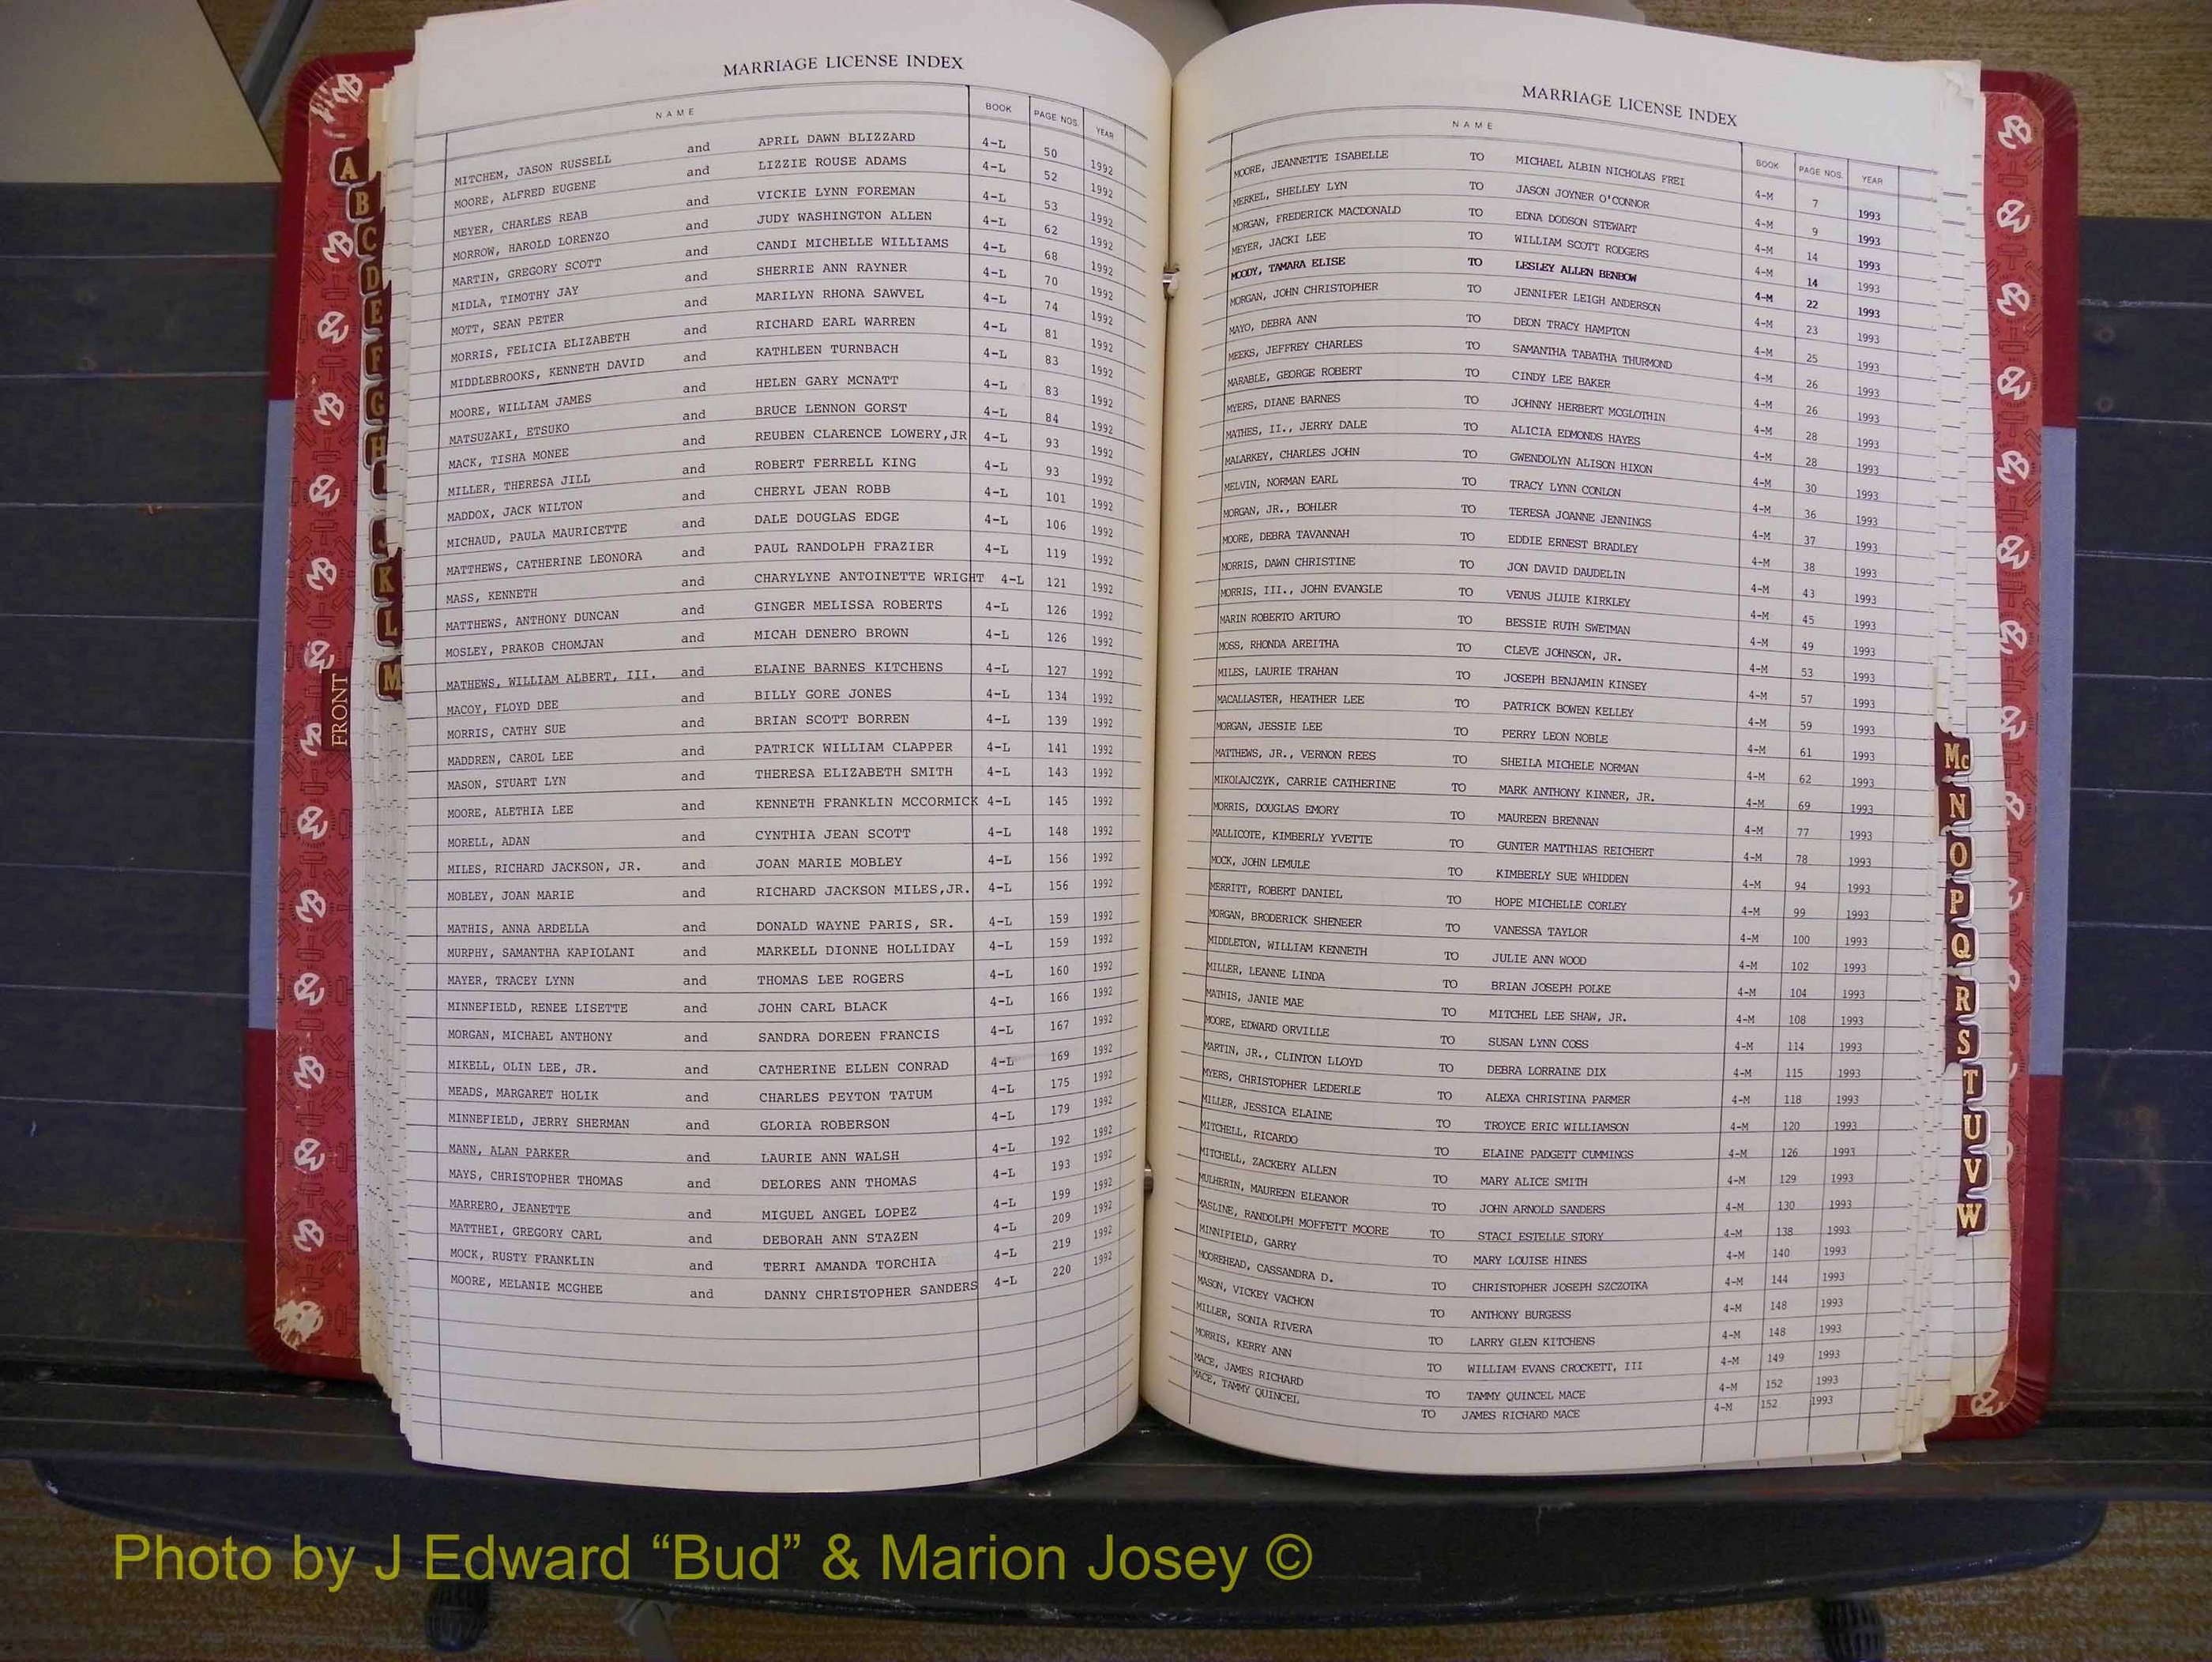 MARRIAGE LICENSE INDEX
NAME BOOK PAGE NOS. YEAR
MITCHEM, JASON RUSSELL and APRIL DAWN BLIZZARD 4-L 50 1992
MOORE, ALFRED EUGENE and LIZZIE ROUSE ADAMS 4-L 52 1992
MEYER, CHARLES REAB and VICKIE LYNN FOREMAN 4-L 53 1992
MORROW, HAROLD LORENZO and JUDY WASHINGTON ALLEN 4-L 62 1992
MARTIN, GREGORY SCOTT and CANDI MICHELLE WILLIAMS 4-L 68 1992
MIDLA, TIMOTHY JAY and SHERRIE ANN RAYNER 4-L 70 1992
MOTT, SEAN PETER and MARILYN RHONA SAWVEL 4-L 74 1992
MORRIS, FELICIA ELIZABETH and RICHARD EARL WARREN 4-L 81 1992
MIDDLEBROOKS, KENNETH DAVID and KATHLEEN TURNBACH 4-L 83 1992
MOORE, WILLIAM JAMES and HELEN GARY MCNATT 4-L 83 1992
MATSUZAKI, ETSUKO and BRUCE LENNON GORST 4-L 84 1992
MACK, TISHA MONEE and REUBEN CLARENCE LOWERY,JR 4-L 93 1992
MILLER, THERESA JILL and ROBERT FERRELL KING 4-L 93 1992
MADDOX, JACK WILTON and CHERYL JEAN ROBB 4-L 101 1992
MICHAUD, PAULA MAURICETTE and DALE DOUGLAS EDGE 4-L 106 1992
MATTHEWS, CATHERINE LEONORA and PAUL RANDOLPH FRAZIER 4-L 119 1992
MASS, KENNETH and CHARYLYNE ANTOINETTE WRIGHT 4-L 121 1992
MATTHEWS, ANTHONY DUNCAN and GINGER MELISSA ROBERTS 4-L 126 1992
MOSLEY, PRAKOB CHOMJAN and MICAH DENERO BROWN 4-L 126 1992
MATHEWS, WILLIAM ALBERT, III. and ELAINE BARNES KITCHENS 4-L 127 1992
MACOY, FLOYD DEE and BILLY GORE JONES 4-L 134 1992
MORRIS, CATHY SUE and BRIAN SCOTT BORREN 4-L 139 1992
MADDREN, CAROL LEE and PATRICK WILLIAM CLAPPER 4-L 141 1992
MASON, STUART LYN and THERESA ELIZABETH SMITH 4-L 143 1992
MOORE, ALETHIA LEE and KENNETH FRANKLIN MCCORMICK 4-L 145 1992
MORELL, ADAN and CYNTHIA JEAN SCOTT 4-L 148 1992
MILES, RICHARD JACKSON, JR. and JOAN MARIE MOBLEY 4-L 156 1992
MOBLEY, JOAN MARIE and RICHARD JACKSON MILES,JR. 4-L 156 1992
MATHIS, ANNA ARDELLA and DONALD WAYNE PARIS, SR. 4-L 159 1992
MURPHY, SAMANTHA KAPIOLANI and MARKELL DIONNE HOLLIDAY 4-L 159 1992
MAYER, TRACEY LYNN and THOMAS LEE ROGERS 4-L 160 1992
MINNEFIELD, RENEE LISETTE and JOHN CARL BLACK 4-L 166 1992
MORGAN, MICHAEL ANTHONY and SANDRA DOREEN FRANCIS 4-L 167 1992
MIKELL, OLIN LEE, JR. and CATHERINE ELLEN CONRAD 4-L 169 1992
MEADS, MARGARET HOLIK and CHARLES PEYTON TATUM 4-L 175 1992
MINNEFIELD, JERRY SHERMAN and GLORIA ROBERSON 4-L 179 1992
MANN, ALAN PARKER and LAURIE ANN WALSH 4-L 192 1992
MAYS, CHRISTOPHER THOMAS and DELORES ANN THOMAS 4-L 193 1992
MARRERO, JEANETTE and MIGUEL ANGEL LOPEZ 4-L 199 1992
MATTHEI, GREGORY CARL and DEBORAH ANN STAZEN 4-L 209 1992
MOCK, RUSTY FRANKLIN and TERRI AMANDA TORCHIA 4-L 219 1992
MOORE, MELANIE MCGHEE and DANNY CHRISTOPHER SANDERS 4-L 220 1992
MARRIAGE LICENSE INDEX
NAME BOOK PAGE NOS. YEAR
MOORE, JEANNETTE ISABELLE TO MICHAEL ALBIN NICHOLAS FREI 4-M 7 1993
MERKEL, SHELLEY LYN TO JASON JOYNER O'CONNOR 4-M 9 1993
MORGAN, FREDERICK MACDONALD TO EDNA DODSON STEWART 4-M 14 1993
MEYER, JACKI LEE TO WILLIAM SCOTT RODGERS 4-M 14 1993
MOODY, TAMARA ELISE TO LESLEY ALLEN BENBOW 4-M 22 1993
MORGAN, JOHN CHRISTOPHER TO JENNIFER LEIGH ANDERSON 4-M 23 1993
MAYO, DEBRA ANN TO DEON TRACY HAMPTON 4-M 25 1993
MEEKS, JEFFREY CHARLES TO SAMANTHA TABATHA THURMOND 4-M 26 1993
MARABLE, GEORGE ROBERT TO CINDY LEE BAKER 4-M 26 1993
MYERS, DIANE BARNES TO JOHNNY HERBERT MCGLOTHIN 4-M 28 1993
MATHES, II., JERRY DALE TO ALICIA EDMONDS HAYES 4-M 28 1993
MALARKEY, CHARLES JOHN TO GWENDOLYN ALISON HIXON 4-M 30 1993
MELVIN, NORMAN EARL TO TRACY LYNN CONLON 4-M 36 1993
MORGAN, JR., BOHLER TO TERESA JOANNE JENNINGS 4-M 37 1993
MOORE, DEBRA TAVANNAH TO EDDIE ERNEST BRADLEY 4-M 38 1993
MORRIS, DAWN CHRISTINE TO JON DAVID DAUDELIN 4-M 43 1993
MORRIS, III., JOHN EVANGLE TO VENUS JLUIE KIRKLEY 4-M 45 1993
MARIN ROBERTO ARTURO TO BESSIE RUTH SWETMAN 4-M 49 1993
MOSS, RHONDA AREITHA TO CLEVE JOHNSON, JR. 4-M 53 1993
MILES, LAURIE TRAHAN TO JOSEPH BENJAMIN KINSEY 4-M 57 1993
MACALLASTER, HEATHER LEE TO PATRICK BOWEN KELLEY 4-M 59 1993
MORGAN, JESSIE LEE TO PERRY LEON NOBLE 4-M 61 1993
MATTHEWS, JR., VERNON REES TO SHEILA MICHELE NORMAN 4-M 62 1993
MIKOLAJCZYK, CARRIE CATHERINE TO MARK ANTHONY KINNER, JR. 4-M 69 1993
MORRIS, DOUGLAS EMORY TO MAUREEN BRENNAN 4-M 77 1993
MALLICOTE, KIMBERLY YVETTE TO GUNTER MATTHIAS REICHERT 4-M 78 1993
MOCK, JOHN LEMULE TO KIMBERLY SUE WHIDDEN 4-M 94 1993
MERRITT, ROBERT DANIEL TO HOPE MICHELLE CORLEY 4-M 99 1993
MORGAN, BRODERICK SHENEER TO VANESSA TAYLOR 4-M 100 1993
MIDDLETON, WILLIAM KENNETH TO JULIE ANN WOOD 4-M 102 1993
MILLER, LEANNE LINDA TO BRIAN JOSEPH POLKE 4-M 104 1993
MATHIS, JANIE MAE TO MITCHEL LEE SHAW, JR. 4-M 108 1993
MOORE, EDWARD ORVILLE TO SUSAN LYNN COSS 4-M 114 1993
MARTIN, JR., CLINTON LLOYD TO DEBRA LORRAINE DIX 4-M 115 1993
MYERS, CHRISTOPHER LEDERLE TO ALEXA CHRISTINA PARMER 4-M 118 1993
MILLER, JESSICA ELAINE TO TROYCE ERIC WILLIAMSON 4-M 120 1993
MITCHELL, RICARDO TO ELAINE PADGETT CUMMINGS 4-M 126 1993
MITCHELL, ZACKERY ALLEN TO MARY ALICE SMITH 4-M 129 1993
MULHERIN, MAUREEN ELEANOR TO JOHN ARNOLD SANDERS 4-M 130 1993
MASLINE, RANDOLPH MOFFETT MOORE TO STACI ESTELLE STORY 4-M 138 1993
MINNIFIELD, GARRY TO MARY LOUISE HINES 4-M 140 1993
MOOREHEAD, CASSANDRA D. TO CHRISTOPHER JOSEPH SZCZOTKA 4-M 144 1993
MASON, VICKEY VACHON TO ANTHONY BURGESS 4-M 148 1993
MILLER, SONIA RIVERA TO LARRY GLEN KITCHENS 4-M 148 1993
MORRIS, KERRY ANN TO WILLIAM EVANS CROCKETT, III 4-M 149 1993
MACE, JAMES RICHARD TO TAMMY QUINCEL MACE 4-M 152 1993
MACE, TAMMY QUINCEL TO JAMES RICHARD MACE 4-M 152 1993
A
B
C
D
E
F
G
H
I
J
K
L
M
FRONT
Mc
N
O
P
Q
R
S
T
U
V
W
Photo by J Edward “Bud” & Marion Josey ©